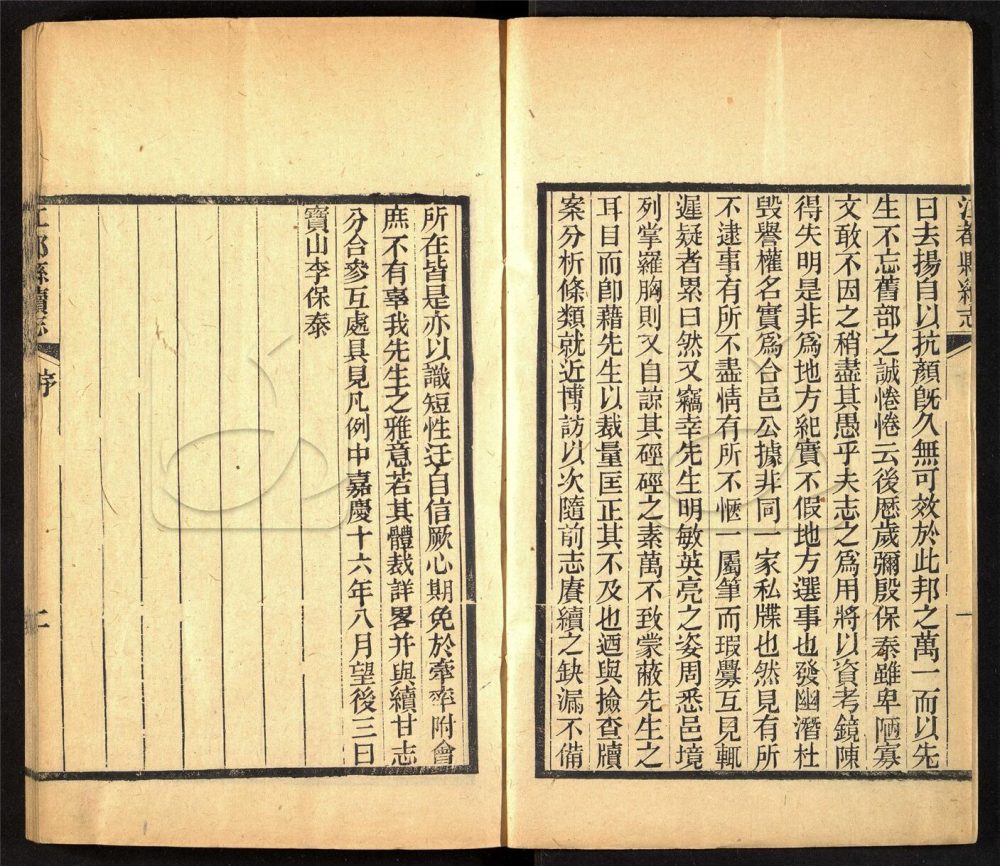 江都縣續志
一
日去揚自以抗顏旣久無可效於此邦之萬一而以先
生不忘舊部之誠惓惓云後歷歲彌殷保泰雖卑陋寡
文敢不因之稍盡其愚乎夫志之為用將以資考鏡陳
得失明是非為地方紀實不假地方選事也發幽潛杜
毀譽權名實為合邑公據非同一家私牒也然見有所
不逮事有所不盡情有所不愜一屬筆而瑕釁互見輒
遲疑者累日然又竊幸先生明敏英亮之姿周悉邑境
列掌羅胸則又自諒其硜硜之素萬不致蒙蔽先生之
耳目而卽藉先生以裁量匡正其不及也迺與撿查牘
案分析條類就近博訪以次隨前志賡續之缺漏不備
所在皆是亦以識短性迂自信厥心期免於牽率附會
庶不有辜我先生之雅意若其體裁詳畧并與續甘志
分合參互處具見凡例中嘉慶十六年八月望後三日
寶山李保泰
江都縣續志
序
二